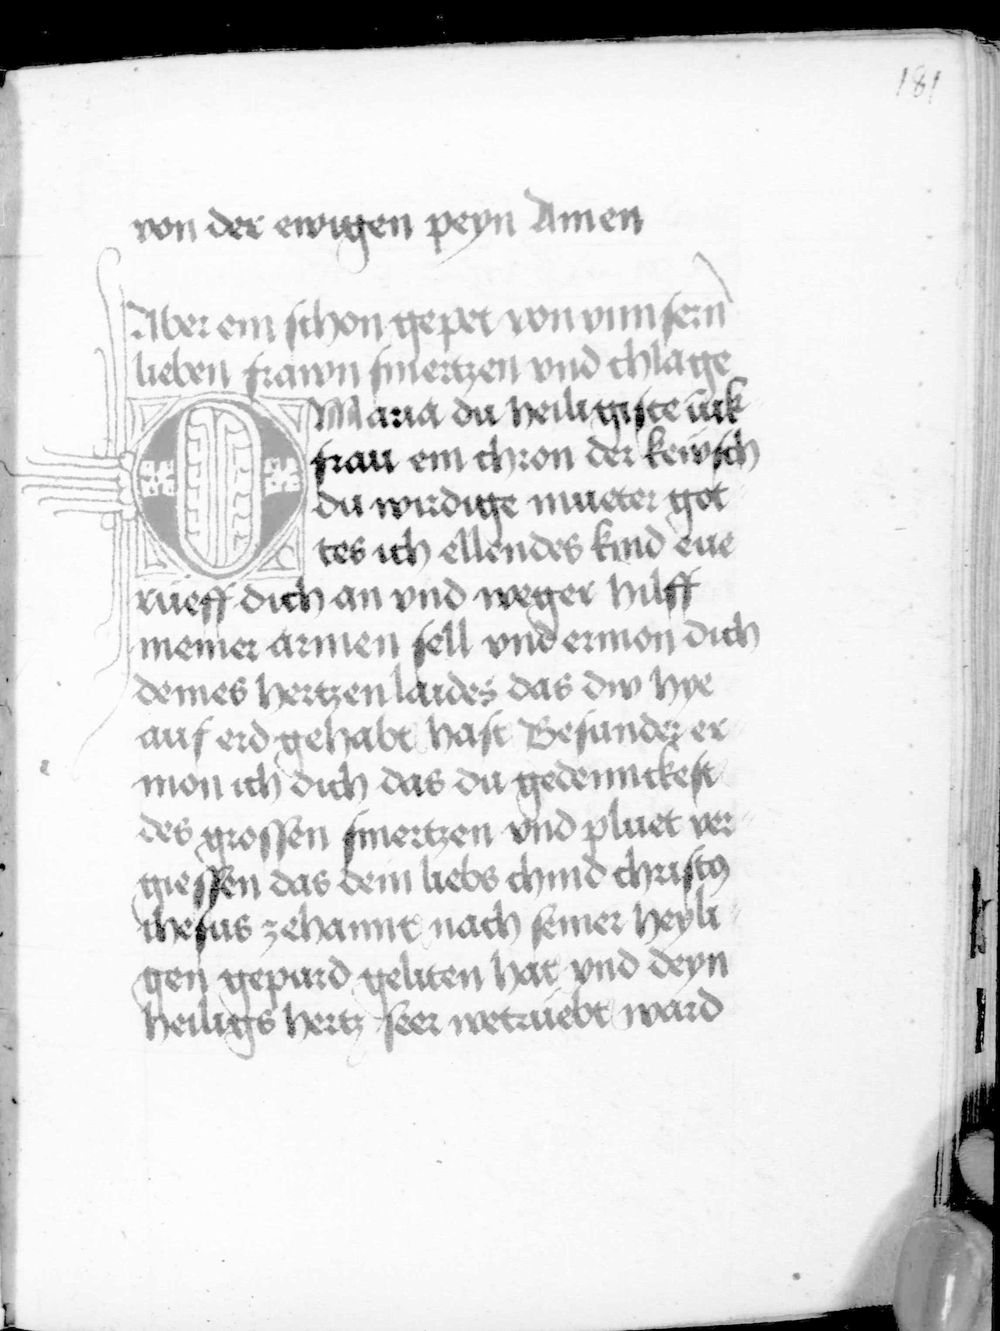 181
von der ewigen peyn Amen
Aber ein schon gepet von vnnsern
lieben frawn smertzen vnd chlage
O Maria du heiligiste iūck
frau ein chron der kewsch
du wirdige mueter got
tes ich ellendes kind eue
rueff dich an vnd weger hilff
meiner armen sell vnd ermon dich
deines hertzen laides das dw hye
auf erd gehabt hast Besunder er
mon ich dich das du gedennckest
des grossen smertzen vnd pluet ver
giessen das dein liebs chind christus
ihesus zehannt nach seiner heyli
gen gepurd geliten hat vnd deyn
heiligs hertz seer wetruebt ward